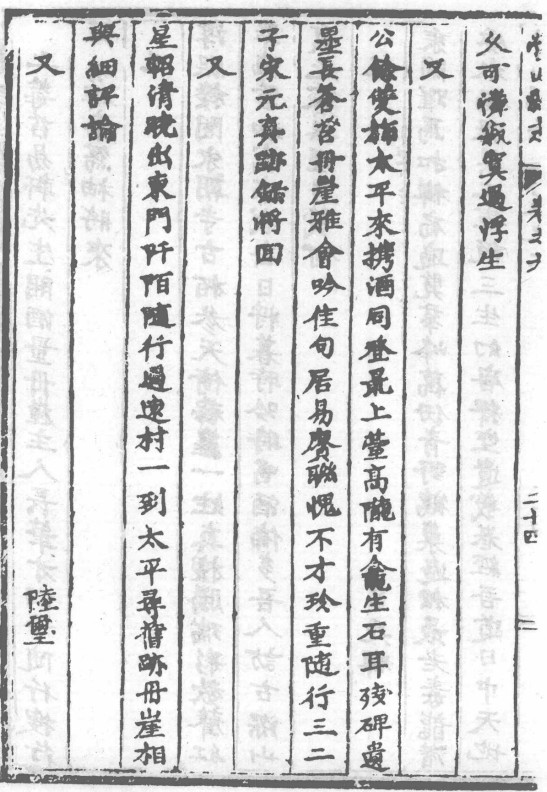 山縣志 卷之六 二十四
可憚翼過浮生
又
公餘雙太平來携酒同登最上臺高隴有龕生石耳殘碑遺
墨長蒼苔丹崖雅會吟佳句居易賡聯愧不才珍重隨行三二
子宋元真跡錄將回
又
星軺清曉出東門阡陌隨行過遠村一到太平尋舊跡丹崖相
與細評論
又 陸璽